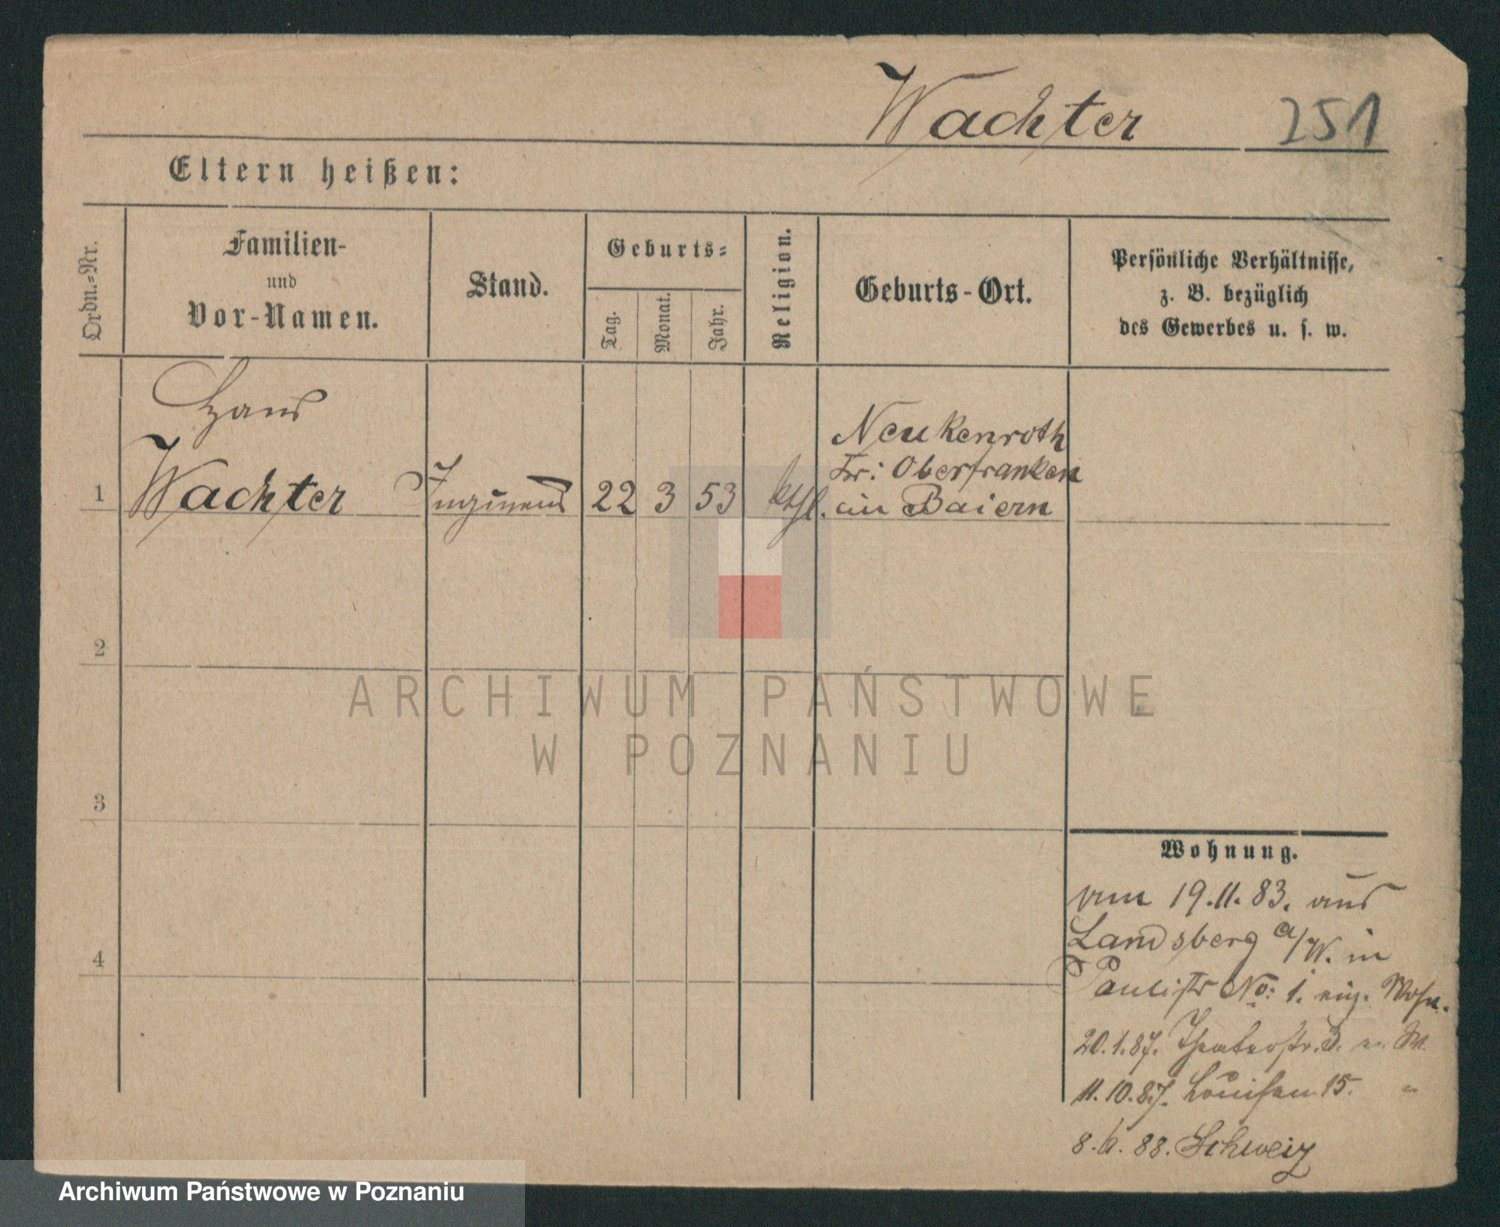 Wachter 251
Eltern heißen:
Ordn.-Nr.
Familien-
und
Vor-Namen.
Stand.
Geburts-
Tag.
Monat.
Jahr.
Religion.
Geburts-Ort.
Persönliche Verhältnisse,
z. B. bezüglich
des Gewerbes u. s. w.
Hans
1 Wachter Ingenieur 22 3 53 kthl.
Neukenroth
Kr: Oberfranken
in Baiern
2
3
4
Wohnung.
vom 19.11.83. aus
Landsberg a/W. in
Paulistr No: 1. eig. Wohn.
20.1.87. Theaterstr. 3.
11.10.87. Louisen 15. "
8.6.88. Schweiz
ARCHIWUM PAŃSTWOWE
W POZNANIU
Archiwum Państwowe w Poznaniu